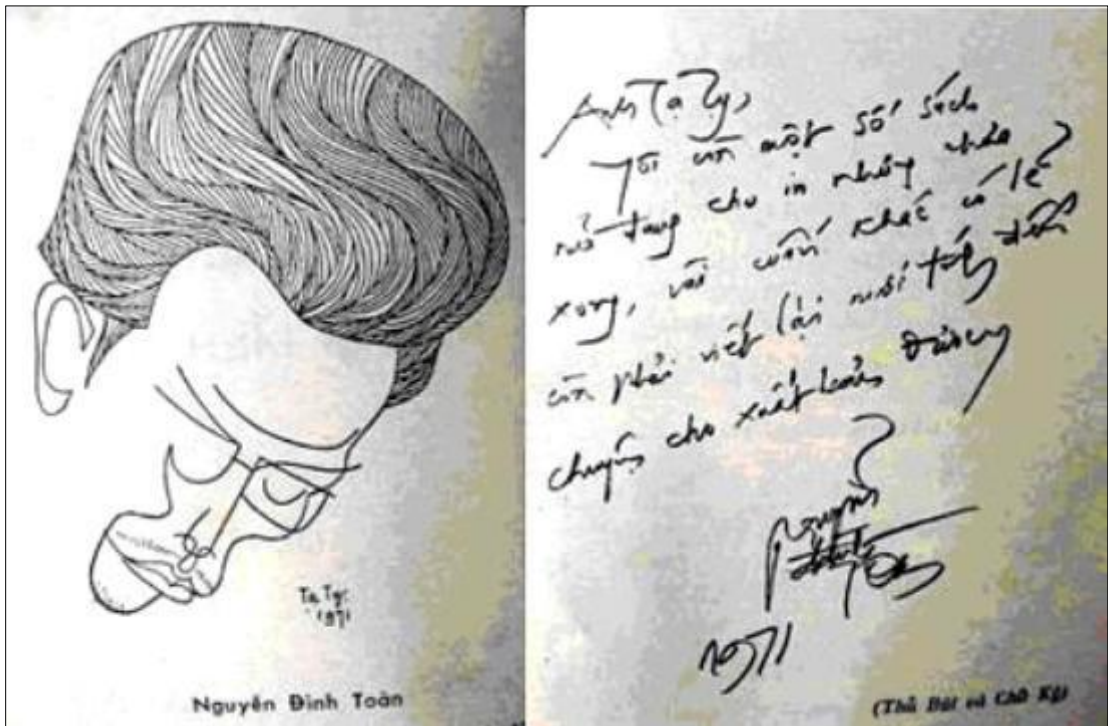 Tạ Tỵ
1971
Nguyễn Đình Toàn
Anh Tạ Tỵ,
Tôi còn một số sách
nữa đang cho in nhưng chưa
xong, vài cuốn khác có lẽ
còn phải viết lại mới tính đến
chuyện cho xuất bản được
Nguyễn
Đình Toàn
1971
(Thủ Bút và Chữ Ký)